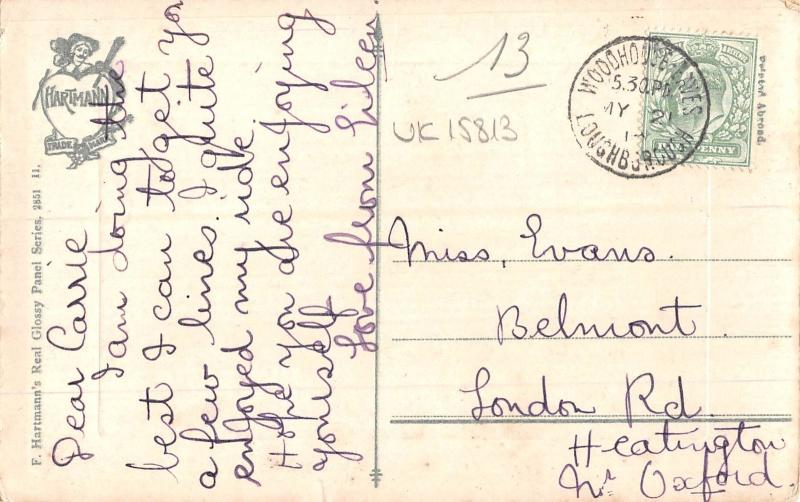 F. Hartmann's Real Glossy Panel Series, 2851 11.
HARTMANN
TRADE MARK
Dear Carrie
I am doing the
best I can to get you
a few lines. I quite
enjoyed my ride
Hope you are enjoying
yourself
Love from Eileen.
13
UK15813
WOODHOUSE EAVES
5.30PM
MY 21
LOUGHBOROUGH
PENNY
Printed Abroad.
Miss, Evans.
Belmont.
London Rd.
Heatington
Nr Oxford.